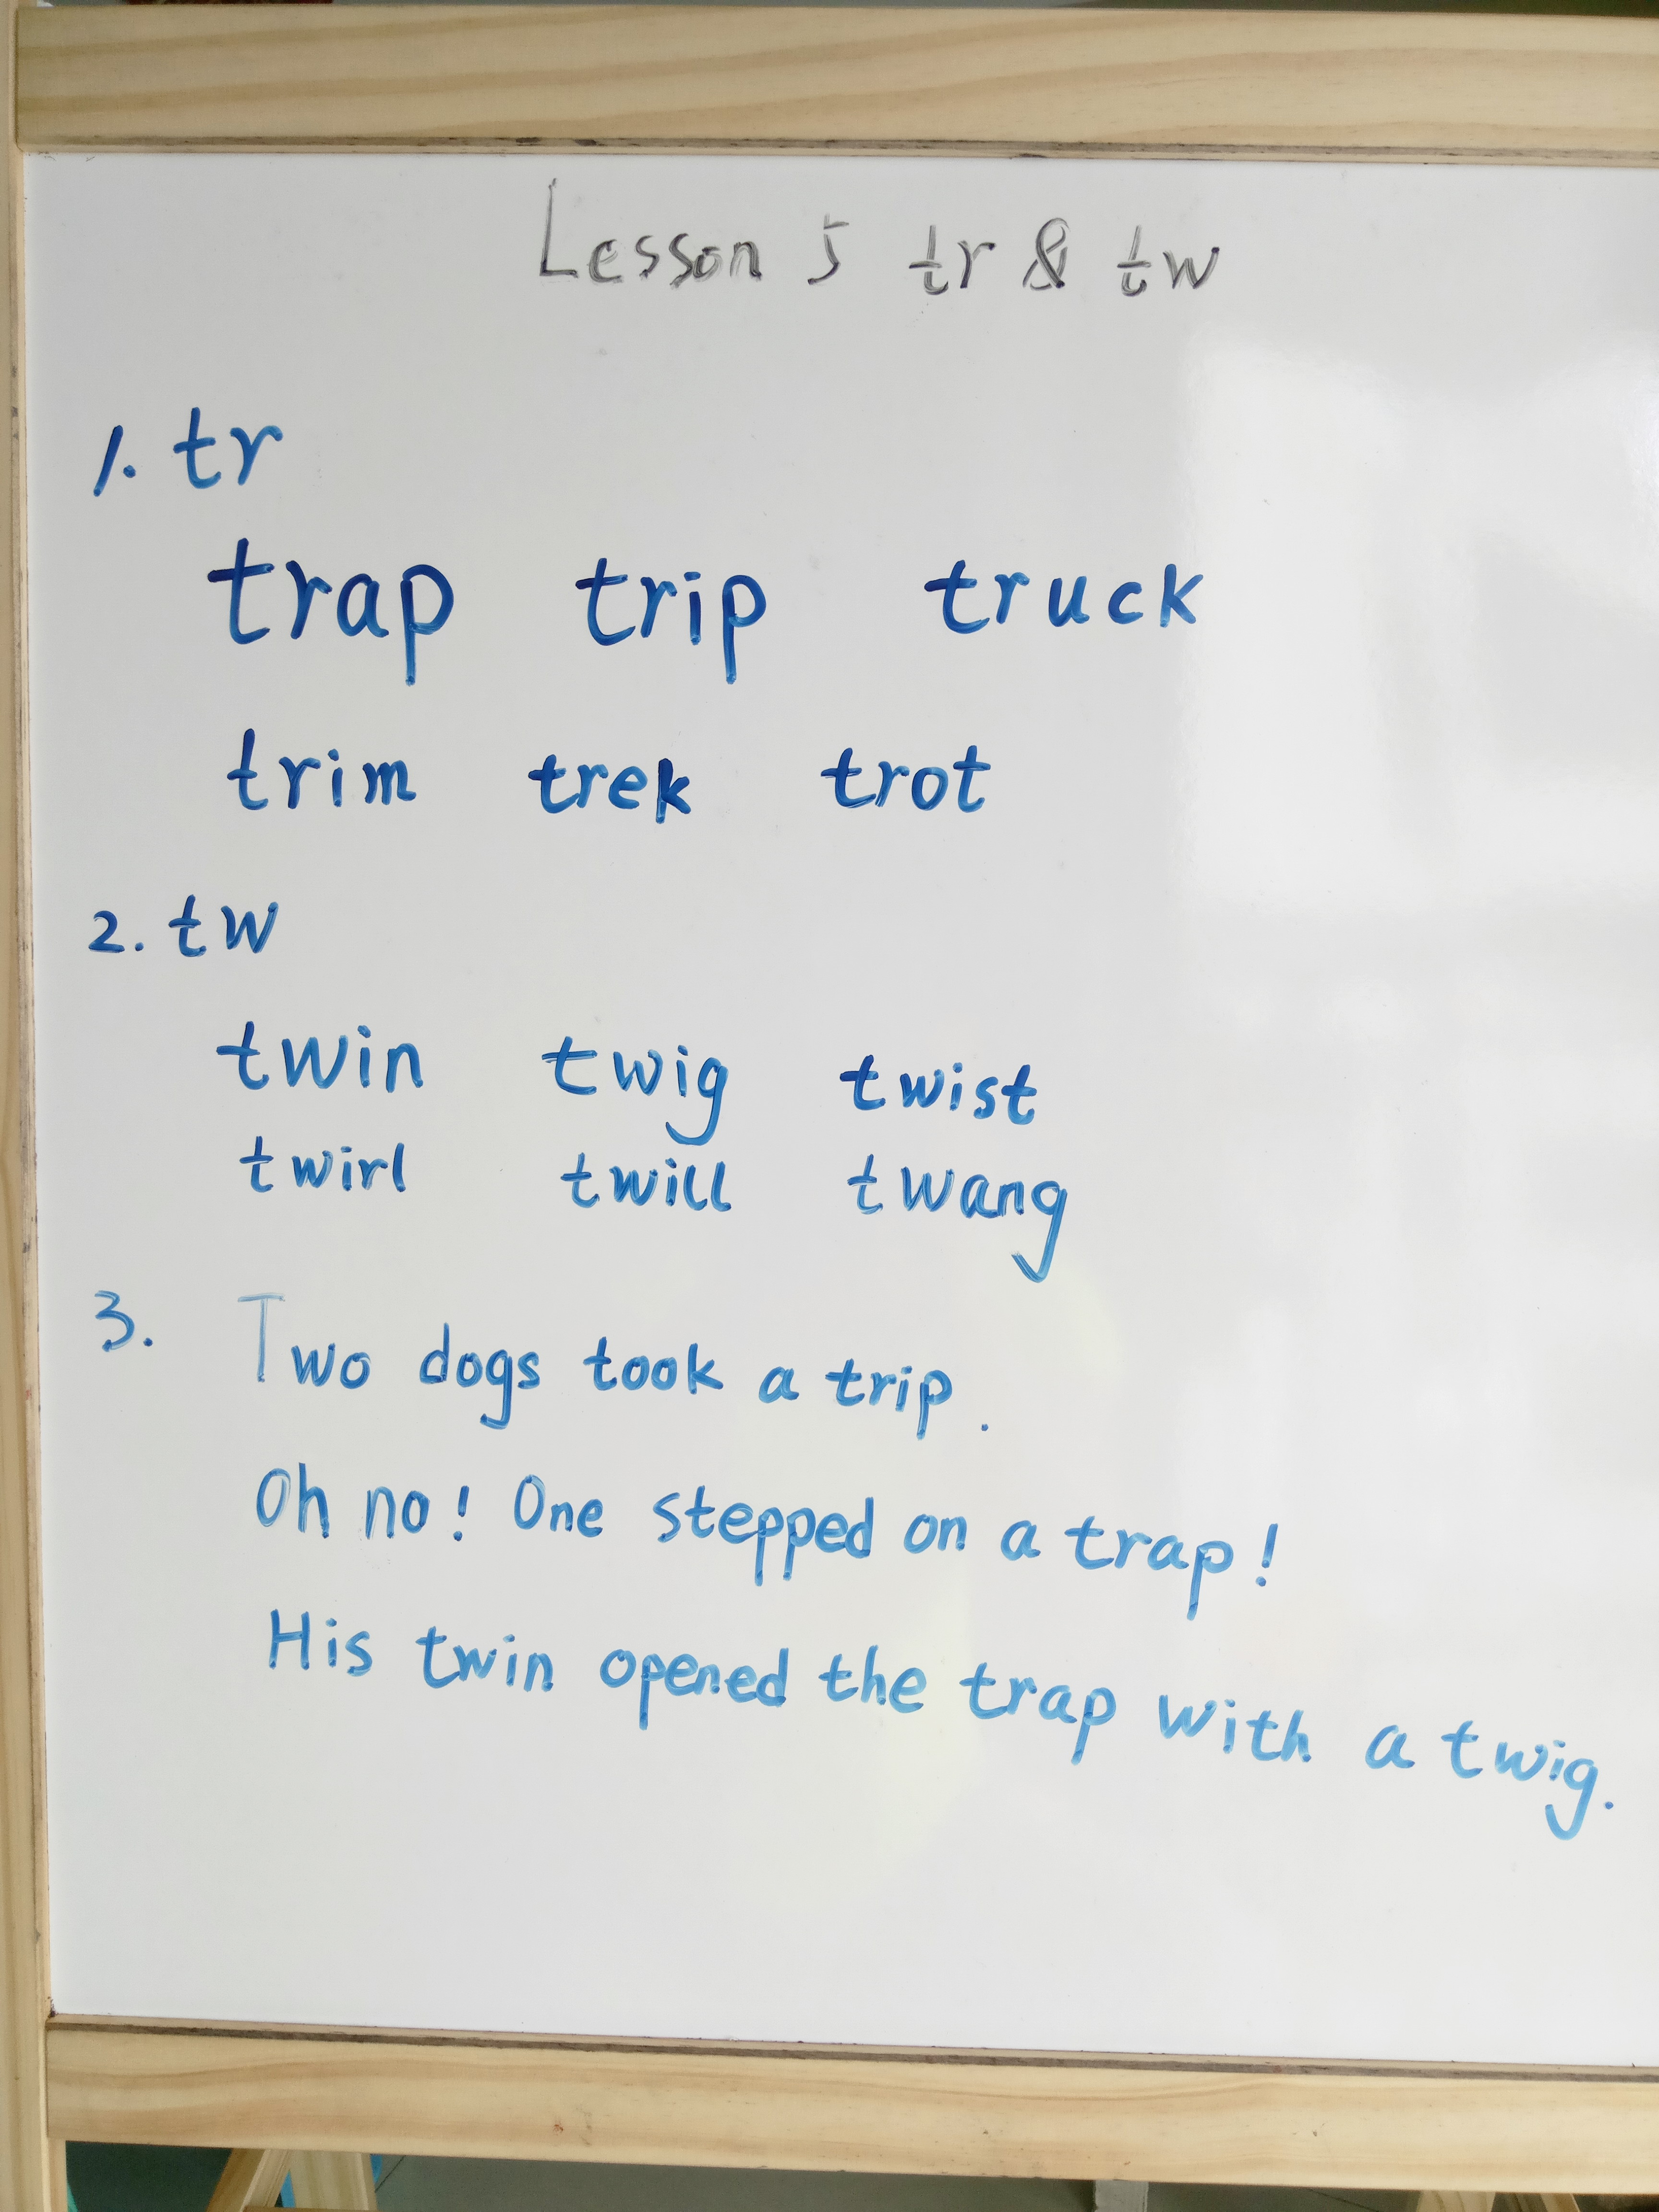 Lesson 5 tr & tw
1. tr
trap trip truck
trim trek trot
2. tw
twin twig twist
twirl twill twang
3. Two dogs took a trip.
Oh no! One stepped on a trap!
His twin opened the trap with a twig.